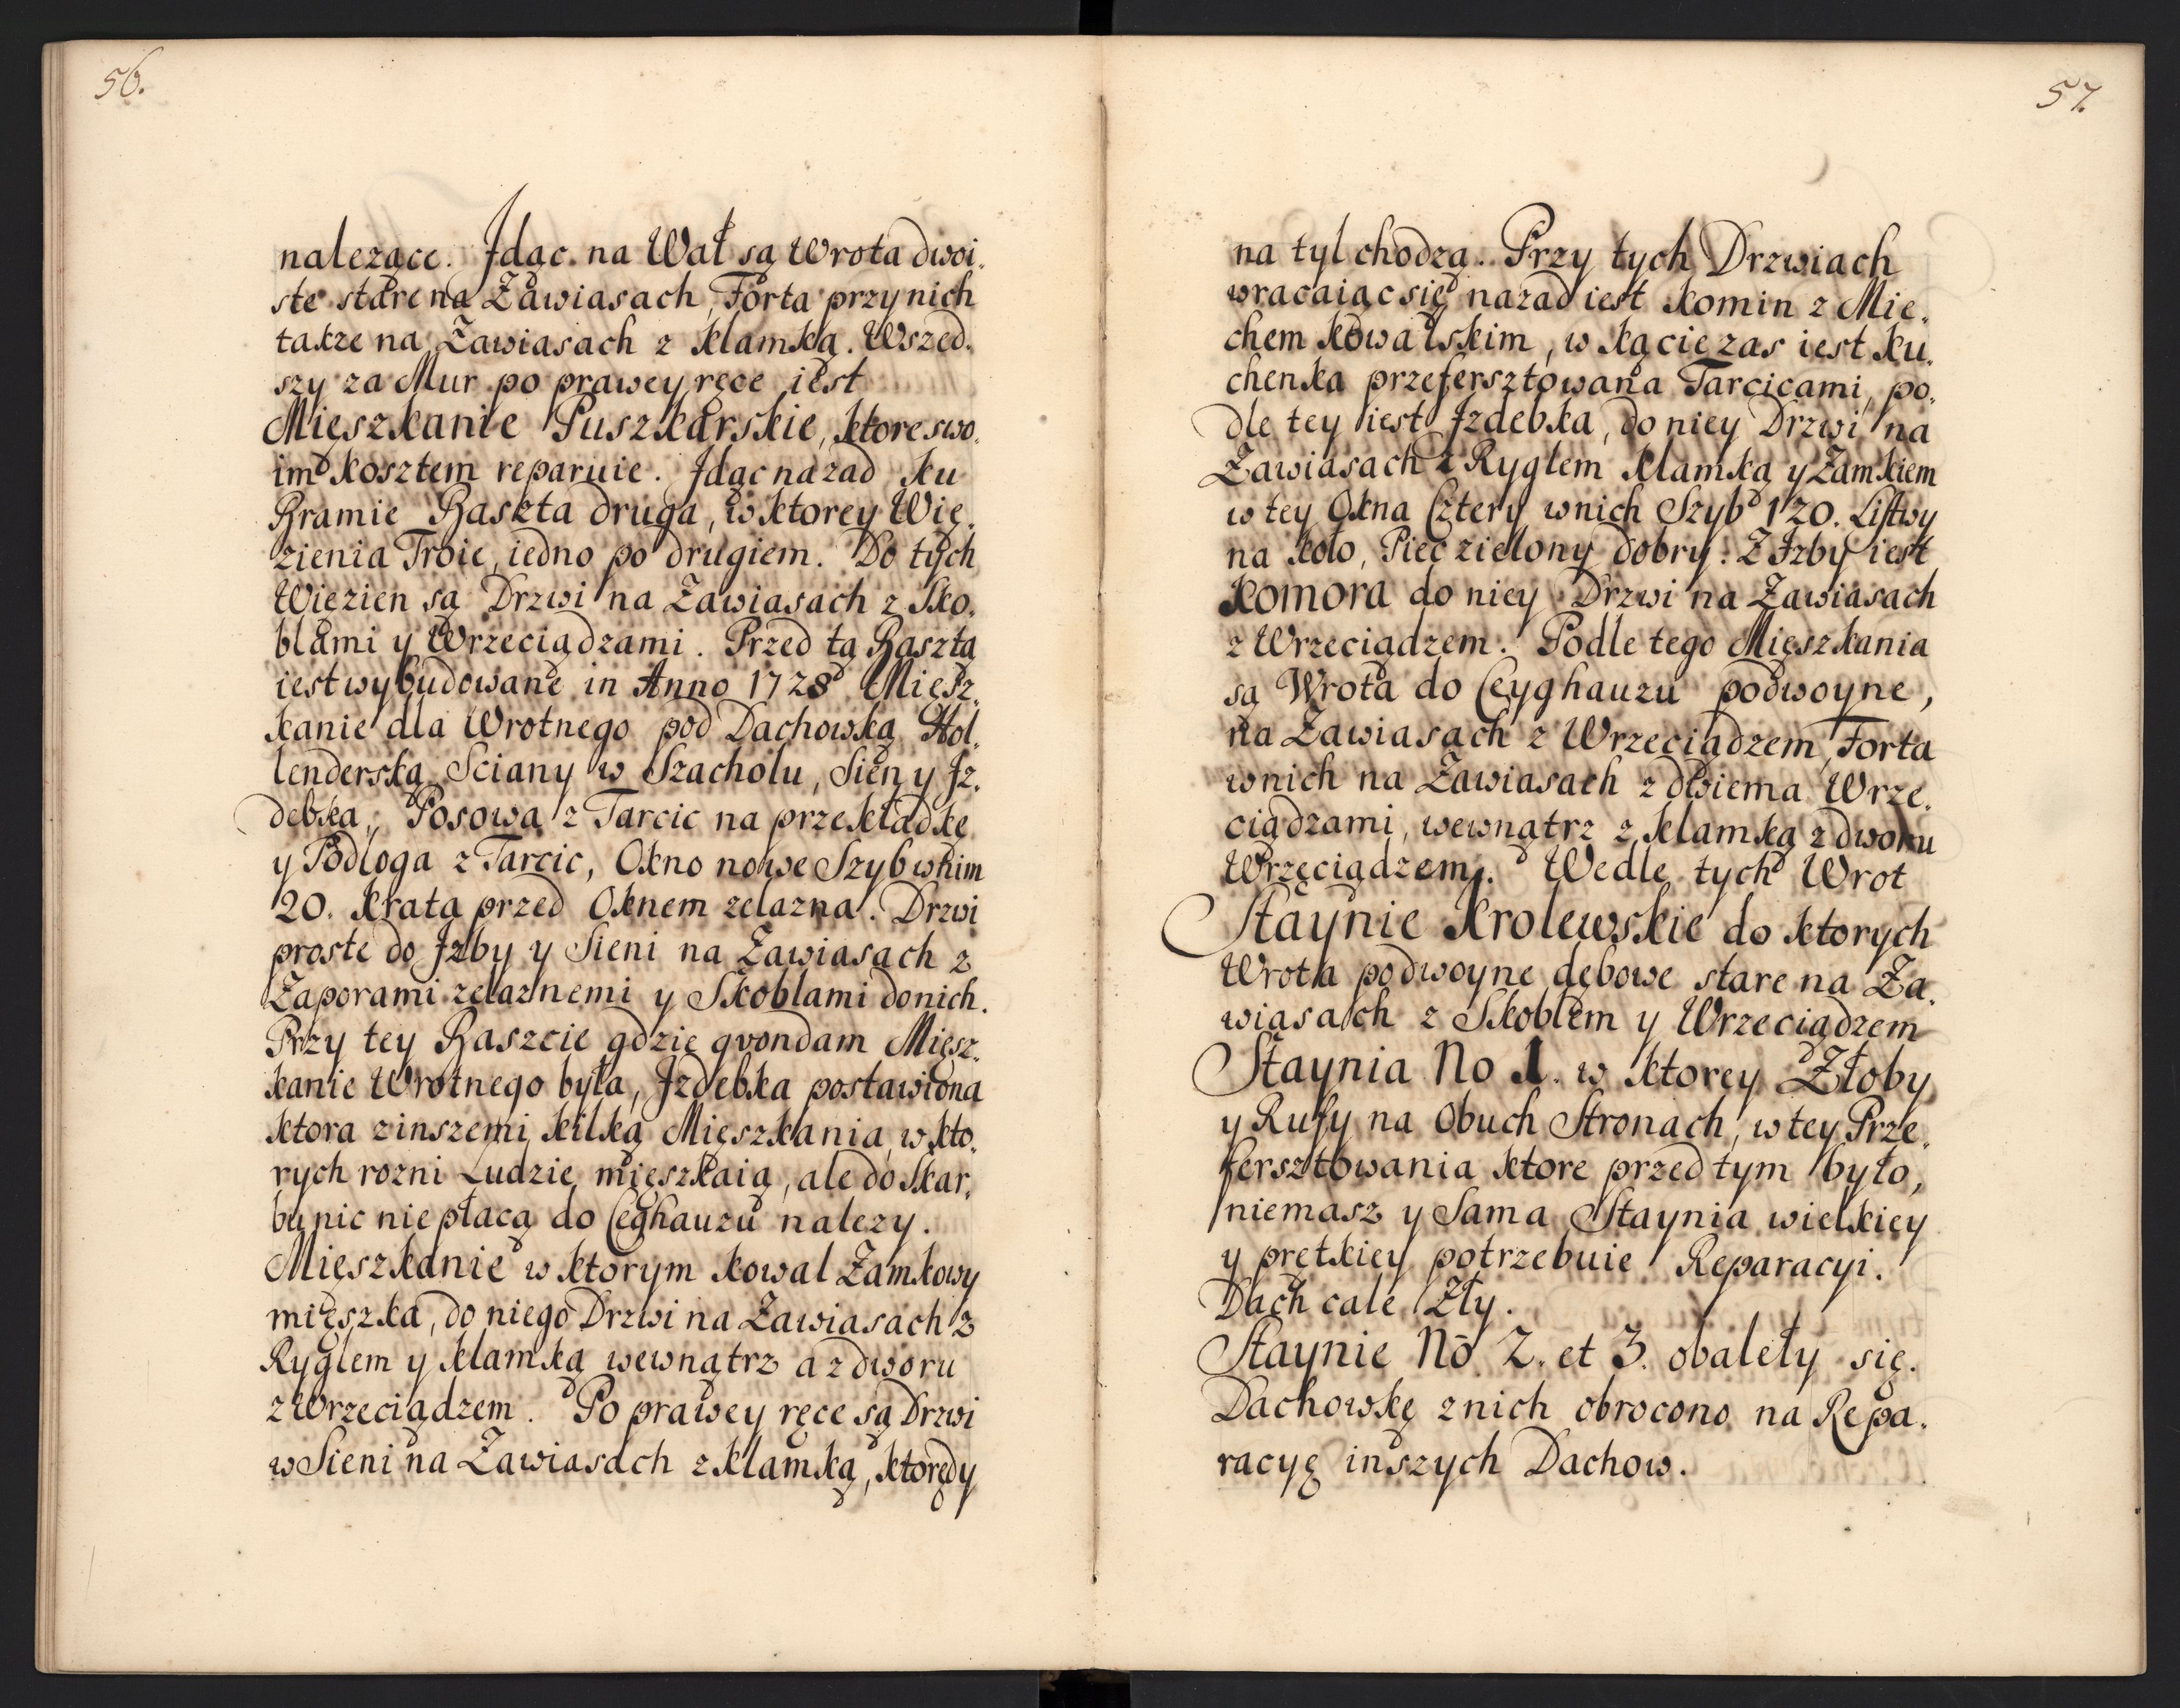 56.
należące. Jdąc. na Wał są Wrota dwoi„
ste stare na Zawiasach, Forta przy nich
takze na Zawiasach z Klamką. Wszed„
szy za Mur po prawey ręce iest
Mięszkanie Puszkarskie, ktore swo„
im Kosztem reparuie. Jdąc nazad ku
Bramie Baszta druga, w ktorey Wię„
zienia Troie, iedno po drugiem. Do tych
Więzien są Drzwi na Zawiasach z Sko„
blami y Wrzeciądzami. Przed tą Basztą
iest wybudowane in Anno 1728 Mięsz„
kanie dla Wrotnego pod Dachowką Hol„
lenderską, Sciany w Szacholu, Sien y Jz„
debka, Posowa z Tarcic na przekładkę
y Podłoga z Tarcic, Okno nowe Szyb w nim
20. Krata przed Oknem zelazna. Drzwi
proste do Jzby y Sieni na Zawiasach z
Zaporami zelaznemi y Skoblami do nich.
Przy tey Baszcie gdzie qvondam Mięsz„
kanie Wrotnego była, Jzdebka postawiona
ktora z inszemi kilką Mięszkania, w kto„
rych rozni Ludzie mięszkaią, ale do Skar„
bu nic nie płacą do Ceghauzu nalezy.
Mięszkanie w ktorym Kowal Zamkowy
mięszka, do niego Drzwi na Zawiasach z
Ryglem y klamką wewnątrz a z dworu
z Wrzeciądzem. Po prawey ręce są Drzwi
w Sieni na Zawiasach z klamką, ktorędy
57.
na tyl chodzą. Przy tych Drzwiach
wracaiąc się nazad iest Komin z Mie„
chem Kowalskim, w kącie zas iest Ku„
chenka przefersztowana Tarcicami, po„
dle tey iest Jzdebka, do niey Drzwi na
Zawiasach z Ryglem Klamką y Zamkiem
w tey Okna Cztery w nich Szyb 120. Listwy
na koło, Piec zielony dobry. Z Jzby iest
Komora do niey Drzwi na Zawiasach
z Wrzeciądzem. Podle tego Mięszkania
są Wrota do Ceyghauzu podwoyne,
na Zawiasach z Wrzeciądzem, Forta
w nich na Zawiasach z dwiema Wrze„
ciądzami, wewnątrz z klamką z dworu
Wrzeciądzem. Wedle tych Wrot
Staynie Krolewskie do ktorych
Wrota podwoyne dębowe stare na Za„
wiasach z Skoblem y Wrzeciądzem
Staynia No 1. w ktorey Złoby
y Rufy na Obuch Stronach, w tey Prze„
fersztowania ktore przed tym było,
niemasz y Sama Staynia wielkiey
y prętkiey potrzebuie Reparacyi.
Dach cale Zły.
Staynie No 2. et 3. obaleły się.
Dachowkę z nich obrocono na Repa„
racyę inszych Dachow.